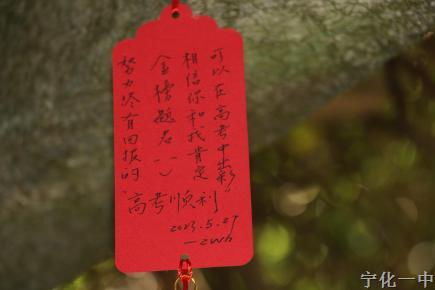 努力终有回报的
金榜题名(!)
相信你和我肯定
可以在高考中出彩
“高考顺利”
2023.5.27
—zwh
宁化一中